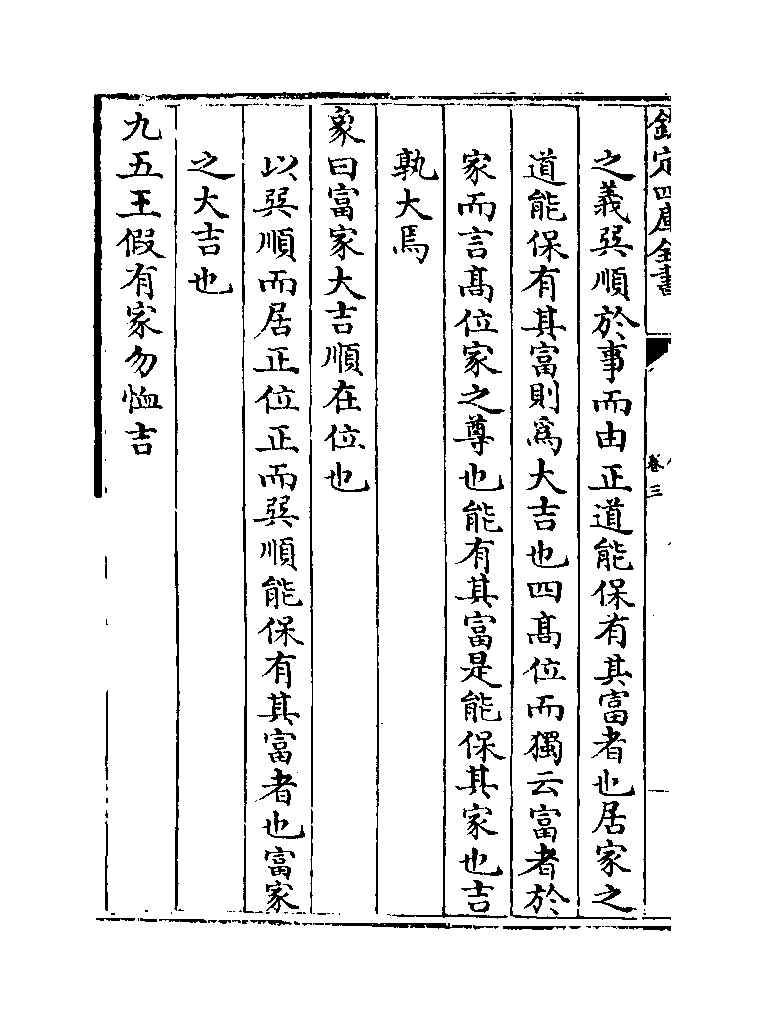 欽定四庫全書
卷三
之義巽順於事而由正道能保有其富者也居家之
道能保有其富則為大吉也四髙位而獨云富者於
家而言髙位家之尊也能有其富是能保其家也吉
孰大焉
象曰富家大吉順在位也
以巽順而居正位正而巽順能保有其富者也富家
之大吉也
九五王假有家勿恤吉